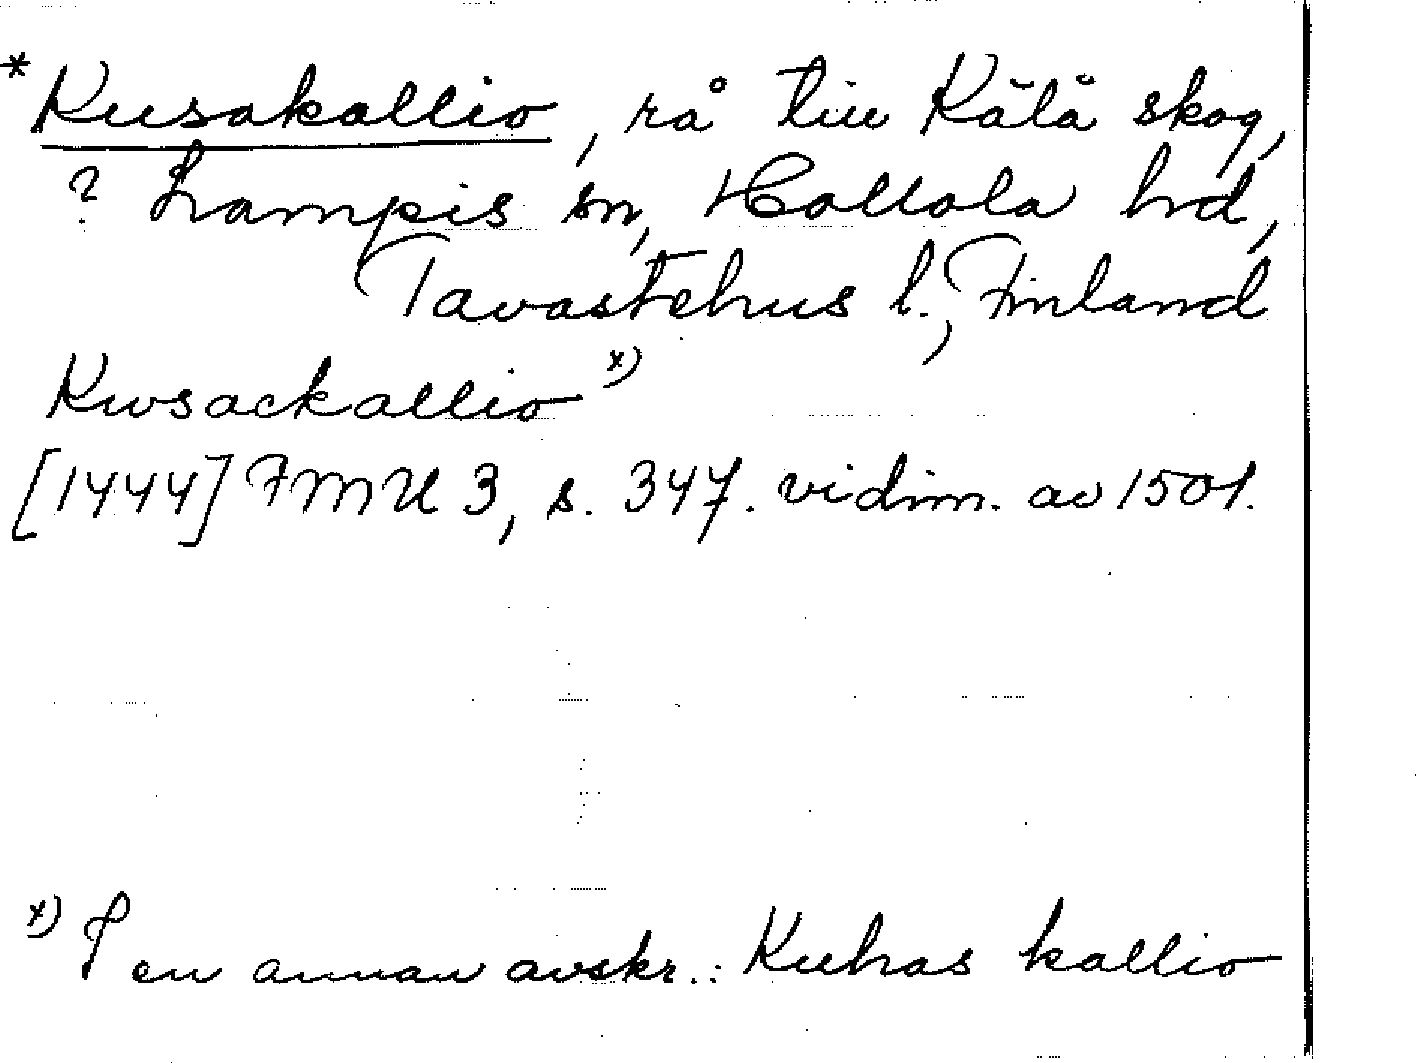 *Kusakallio, rå till Kälä skog,
? Lampis sn, Hollola hd,
Tavastehus l., Finland
Kwsackallio x)
[1444] FMU 3, s. 347. vidim. av 1501.
x) I en annan avskr.: Kuhas kallio